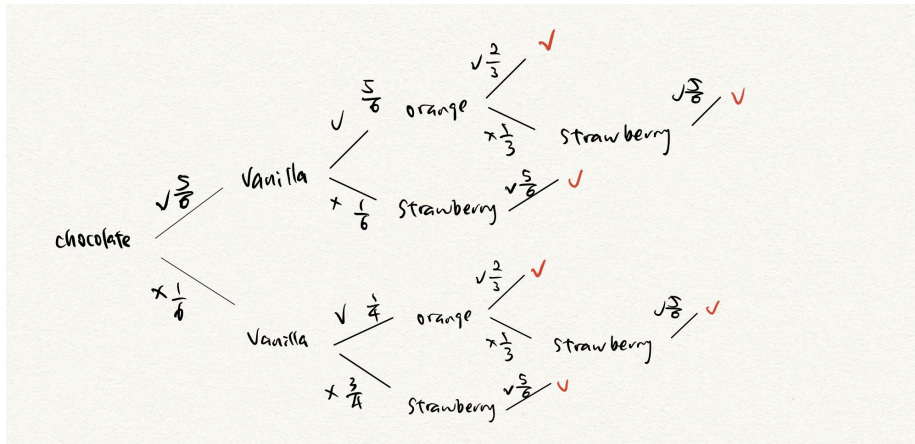 chocolate
✓ 5/6
× 1/6
Vanilla
✓ 5/6
× 1/6
orange
✓ 2/3
✓
× 1/3
strawberry
✓ 5/6
✓
strawberry
✓ 5/6
✓
Vanilla
✓ 1/4
× 3/4
orange
✓ 2/3
✓
× 1/3
strawberry
✓ 5/6
✓
strawberry
✓ 5/6
✓